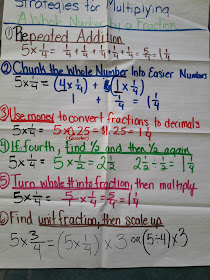 Strategies for Multiplying
A Whole Number by a Fraction
① Repeated Addition
5 x 1/4 = 1/4 + 1/4 + 1/4 + 1/4 + 1/4 = 5/4 = 1 1/4
② Chunk the Whole Number Into Easier Numbers
5 x 1/4 = (4 x 1/4) + (1 x 1/4)
1 + 1/4 = 1 1/4
③ Use money to convert fractions to decimals
5 x 1/4 = 5 x 0.25 = $1.25 = 1 1/4
④ If fourth, find 1/2 and then 1/2 again
5 x 1/4 = 5 x 1/2 = 2 1/2 2 1/2 ÷ 2 = 1 1/4
⑤ Turn whole # into fraction, then multiply
5 x 1/4 = 5/1 x 1/4 = 5/4 = 1 1/4
⑥ Find unit fraction, then scale up
5 x 3/4 = (5 x 1/4) x 3 or (5 ÷ 4) x 3